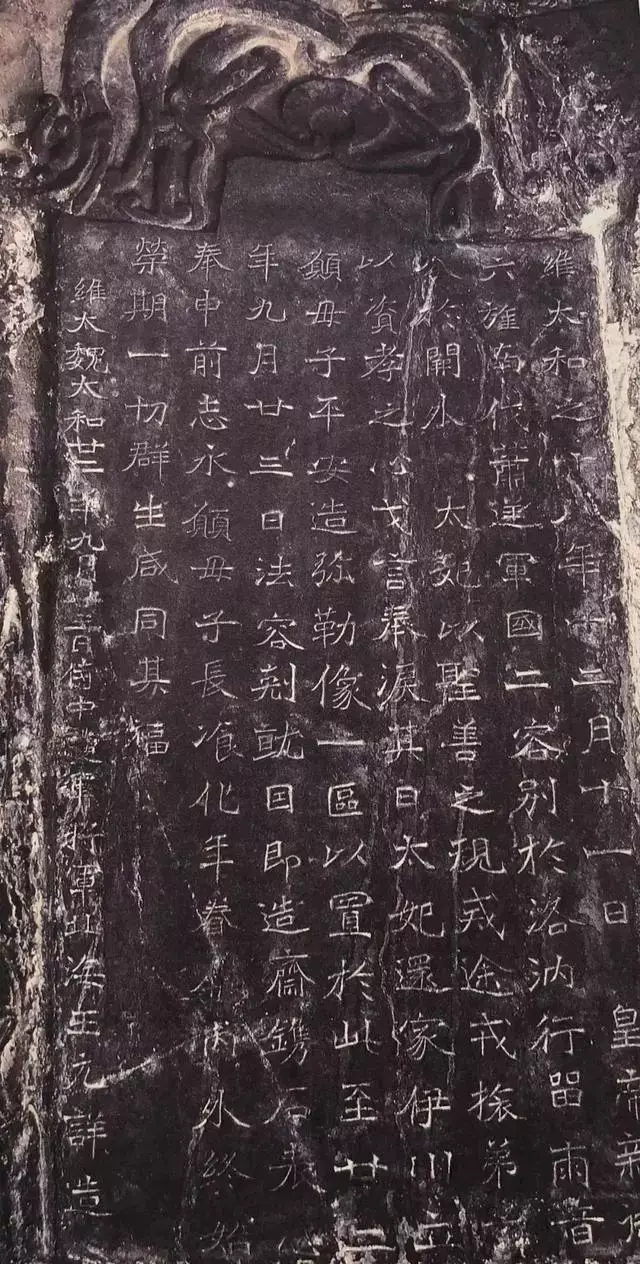 維太和之十八年十二月十一日 皇帝親御
六旌南伐蕭逆軍國二容別於洛汭行留兩音
分於闕外 太妃以聖善之規戒途戒旅弟子
以資孝之心戈言奉淚其日太妃還家伊川立
願母子平安造弥勒像一區以置於此至廿二
年九月廿三日法容剋就因即造齋鐫石表心
奉申前志永願母子長飡化年眷属内外終始
榮期一切群生咸同其福
維大魏太和廿二年九月廿三日侍中護軍將軍北海王元詳造